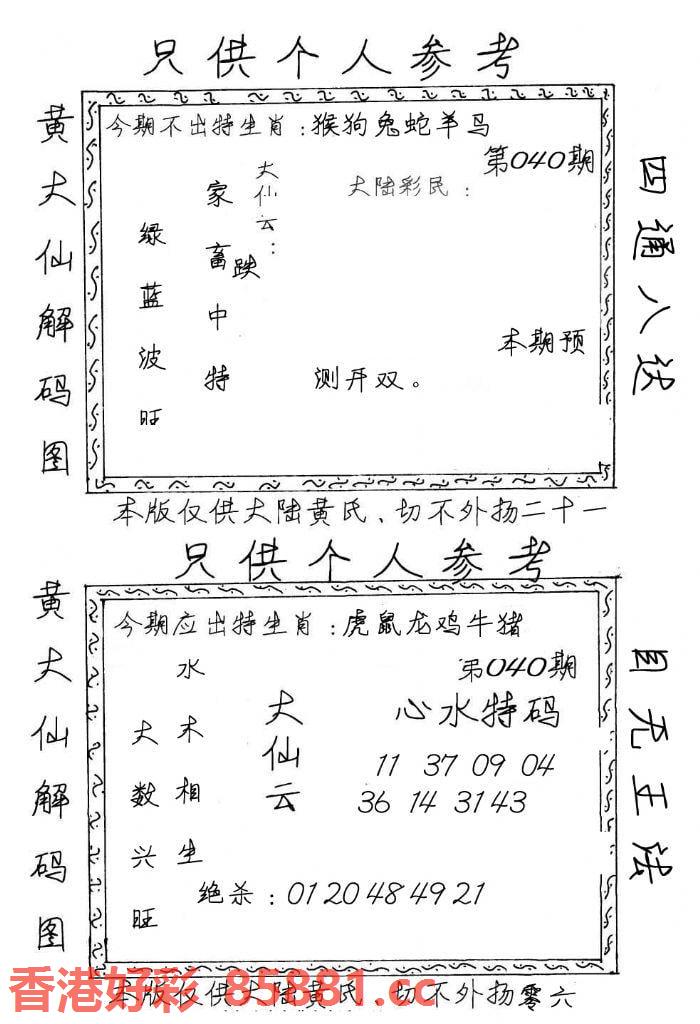 只供个人参考
黄大仙解码图
今期不出特生肖：猴狗兔蛇羊马
第040期
大陆彩民：
大仙云：
跌
家畜中特
绿蓝波旺
本期预
测开双。
四通八达
本版仅供大陆黄氏、切不外扬二十一
只供个人参考
黄大仙解码图
今期应出特生肖：虎鼠龙鸡牛猪
第040期
心水特码
11 37 09 04
36 14 31 43
大仙云
水木相生
大数兴旺
绝杀：01 20 48 49 21
目无王法
本版仅供大陆黄氏、切不外扬零六
香港好彩 85881.cc